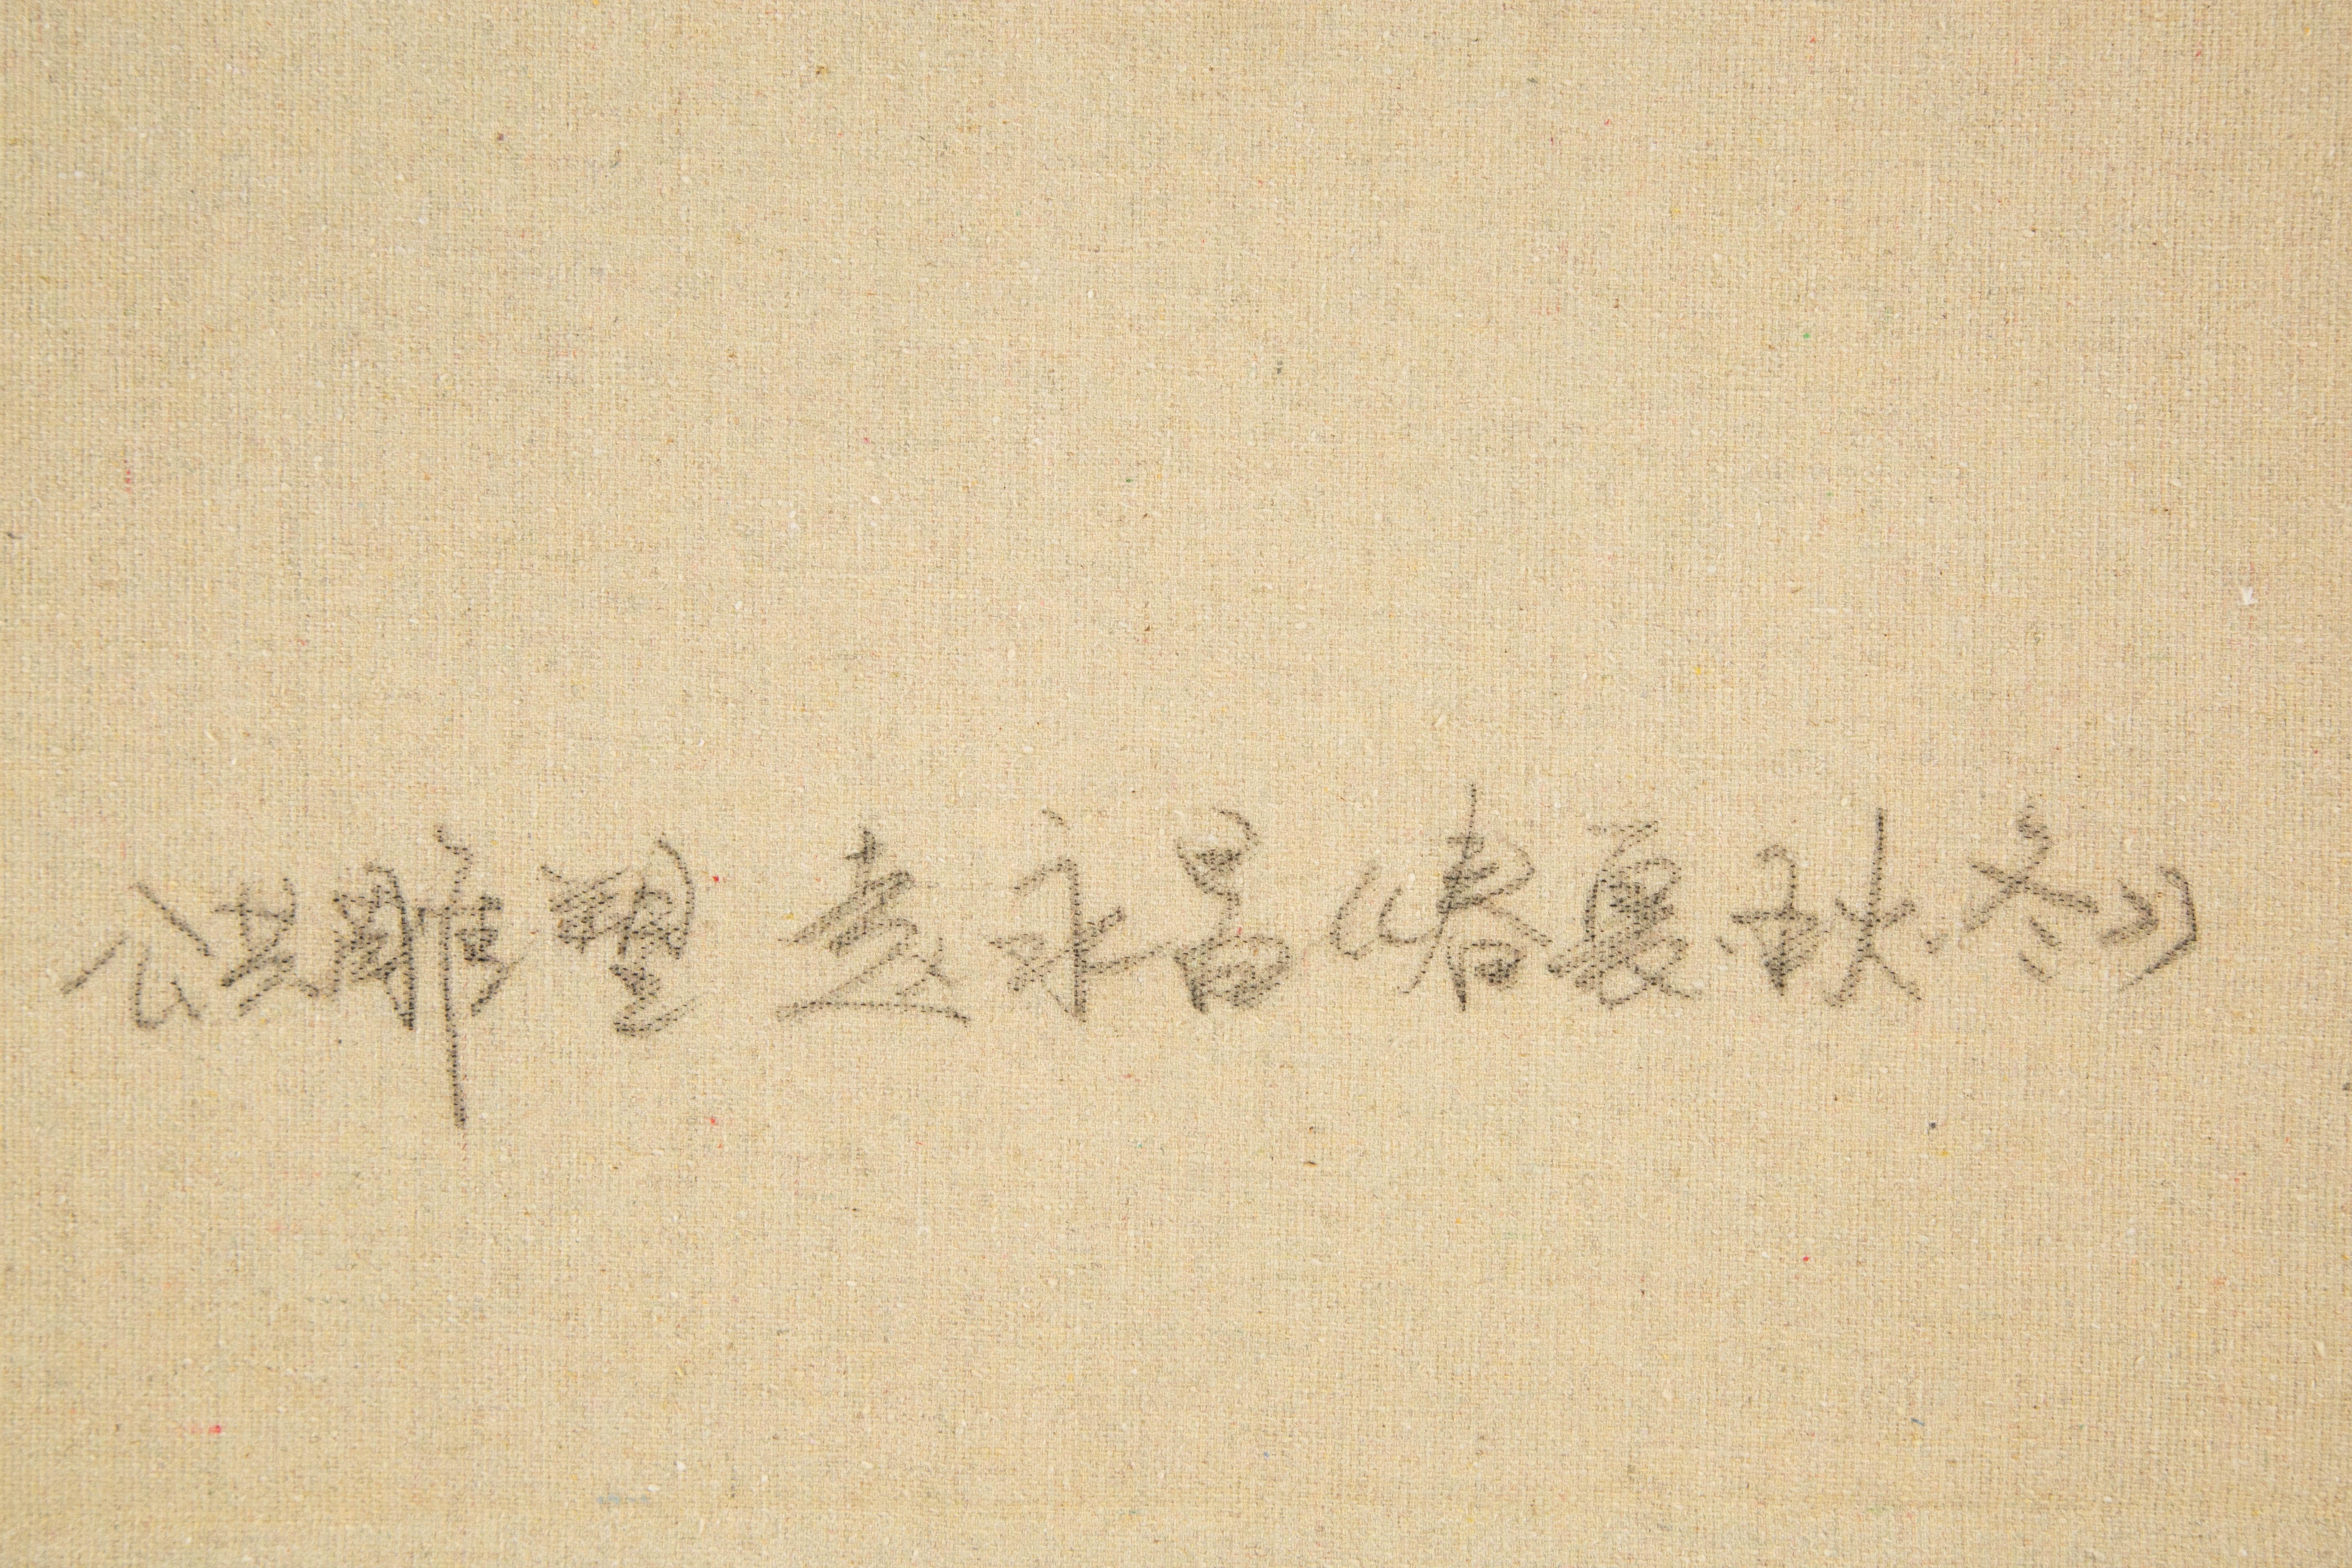 公共雕塑 赵永昌《春·夏·秋·冬》